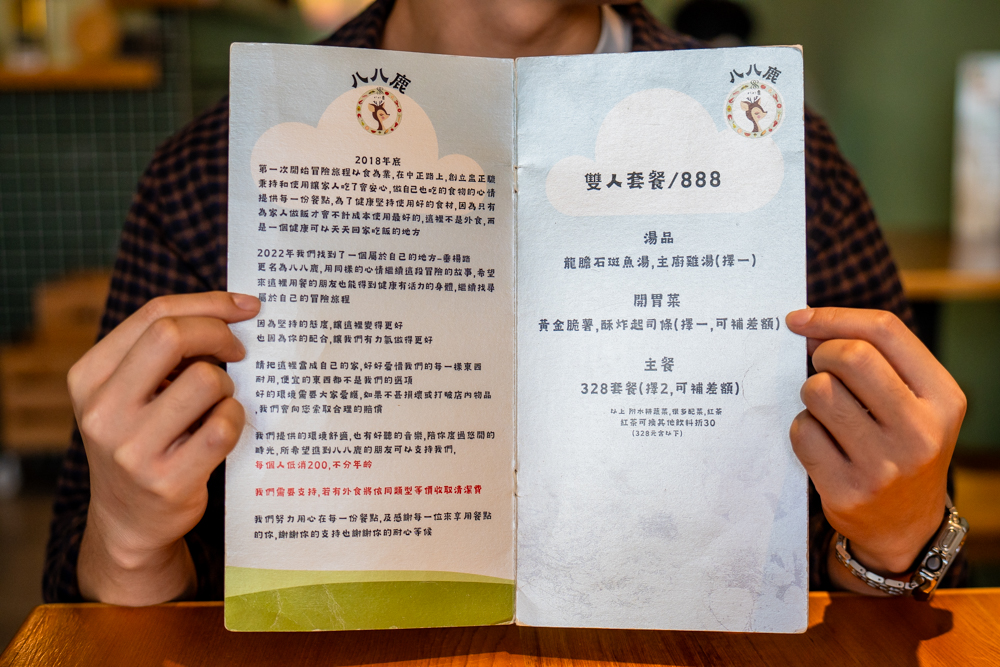 八八鹿
2018年底
第一次開始冒險旅程以食為業,在中正路上,創立盅正驗
秉持和使用讓家人吃了會安心,做自己也吃的食物的心情
提供每一份餐點,為了健康堅持使用好的食材,因為只有
為家人做飯才會不計成本使用最好的,這裡不是外食,而
是一個健康可以天天回家吃飯的地方
2022年我們找到了一個屬於自己的地方-垂楊路
更名為八八鹿,用同樣的心情繼續這段冒險的故事,希望
來這裡用餐的朋友也能得到健康有活力的身體,繼續找尋
屬於自己的冒險旅程
因為堅持的態度,讓這裡變得更好
也因為你的配合,讓我們有力氣做得更好
請把這裡當成自己的家,好好愛惜我們的每一樣東西
耐用,便宜的東西都不是我們的選項
好的環境需要大家愛護,如果不甚損壞或打破店內物品
,我們會向您索取合理的賠償
我們提供的環境舒適,也有好聽的音樂,陪你度過悠閒的
時光,所希望進到八八鹿的朋友可以支持我們,
每個人低消200,不分年齡
我們需要支持,若有外食將依同類型等價收取清潔費
我們努力用心在每一份餐點,及感謝每一位來享用餐點
的你,謝謝你的支持也謝謝你的耐心等候
八八鹿
雙人套餐/888
湯品
龍膽石斑魚湯,主廚雞湯(擇一)
開胃菜
黃金脆薯,酥炸起司條(擇一,可補差額)
主餐
328套餐(擇2,可補差額)
以上 附水耕蔬菜,很多配菜,紅茶
紅茶可換其他飲料折30
(328元含以下)